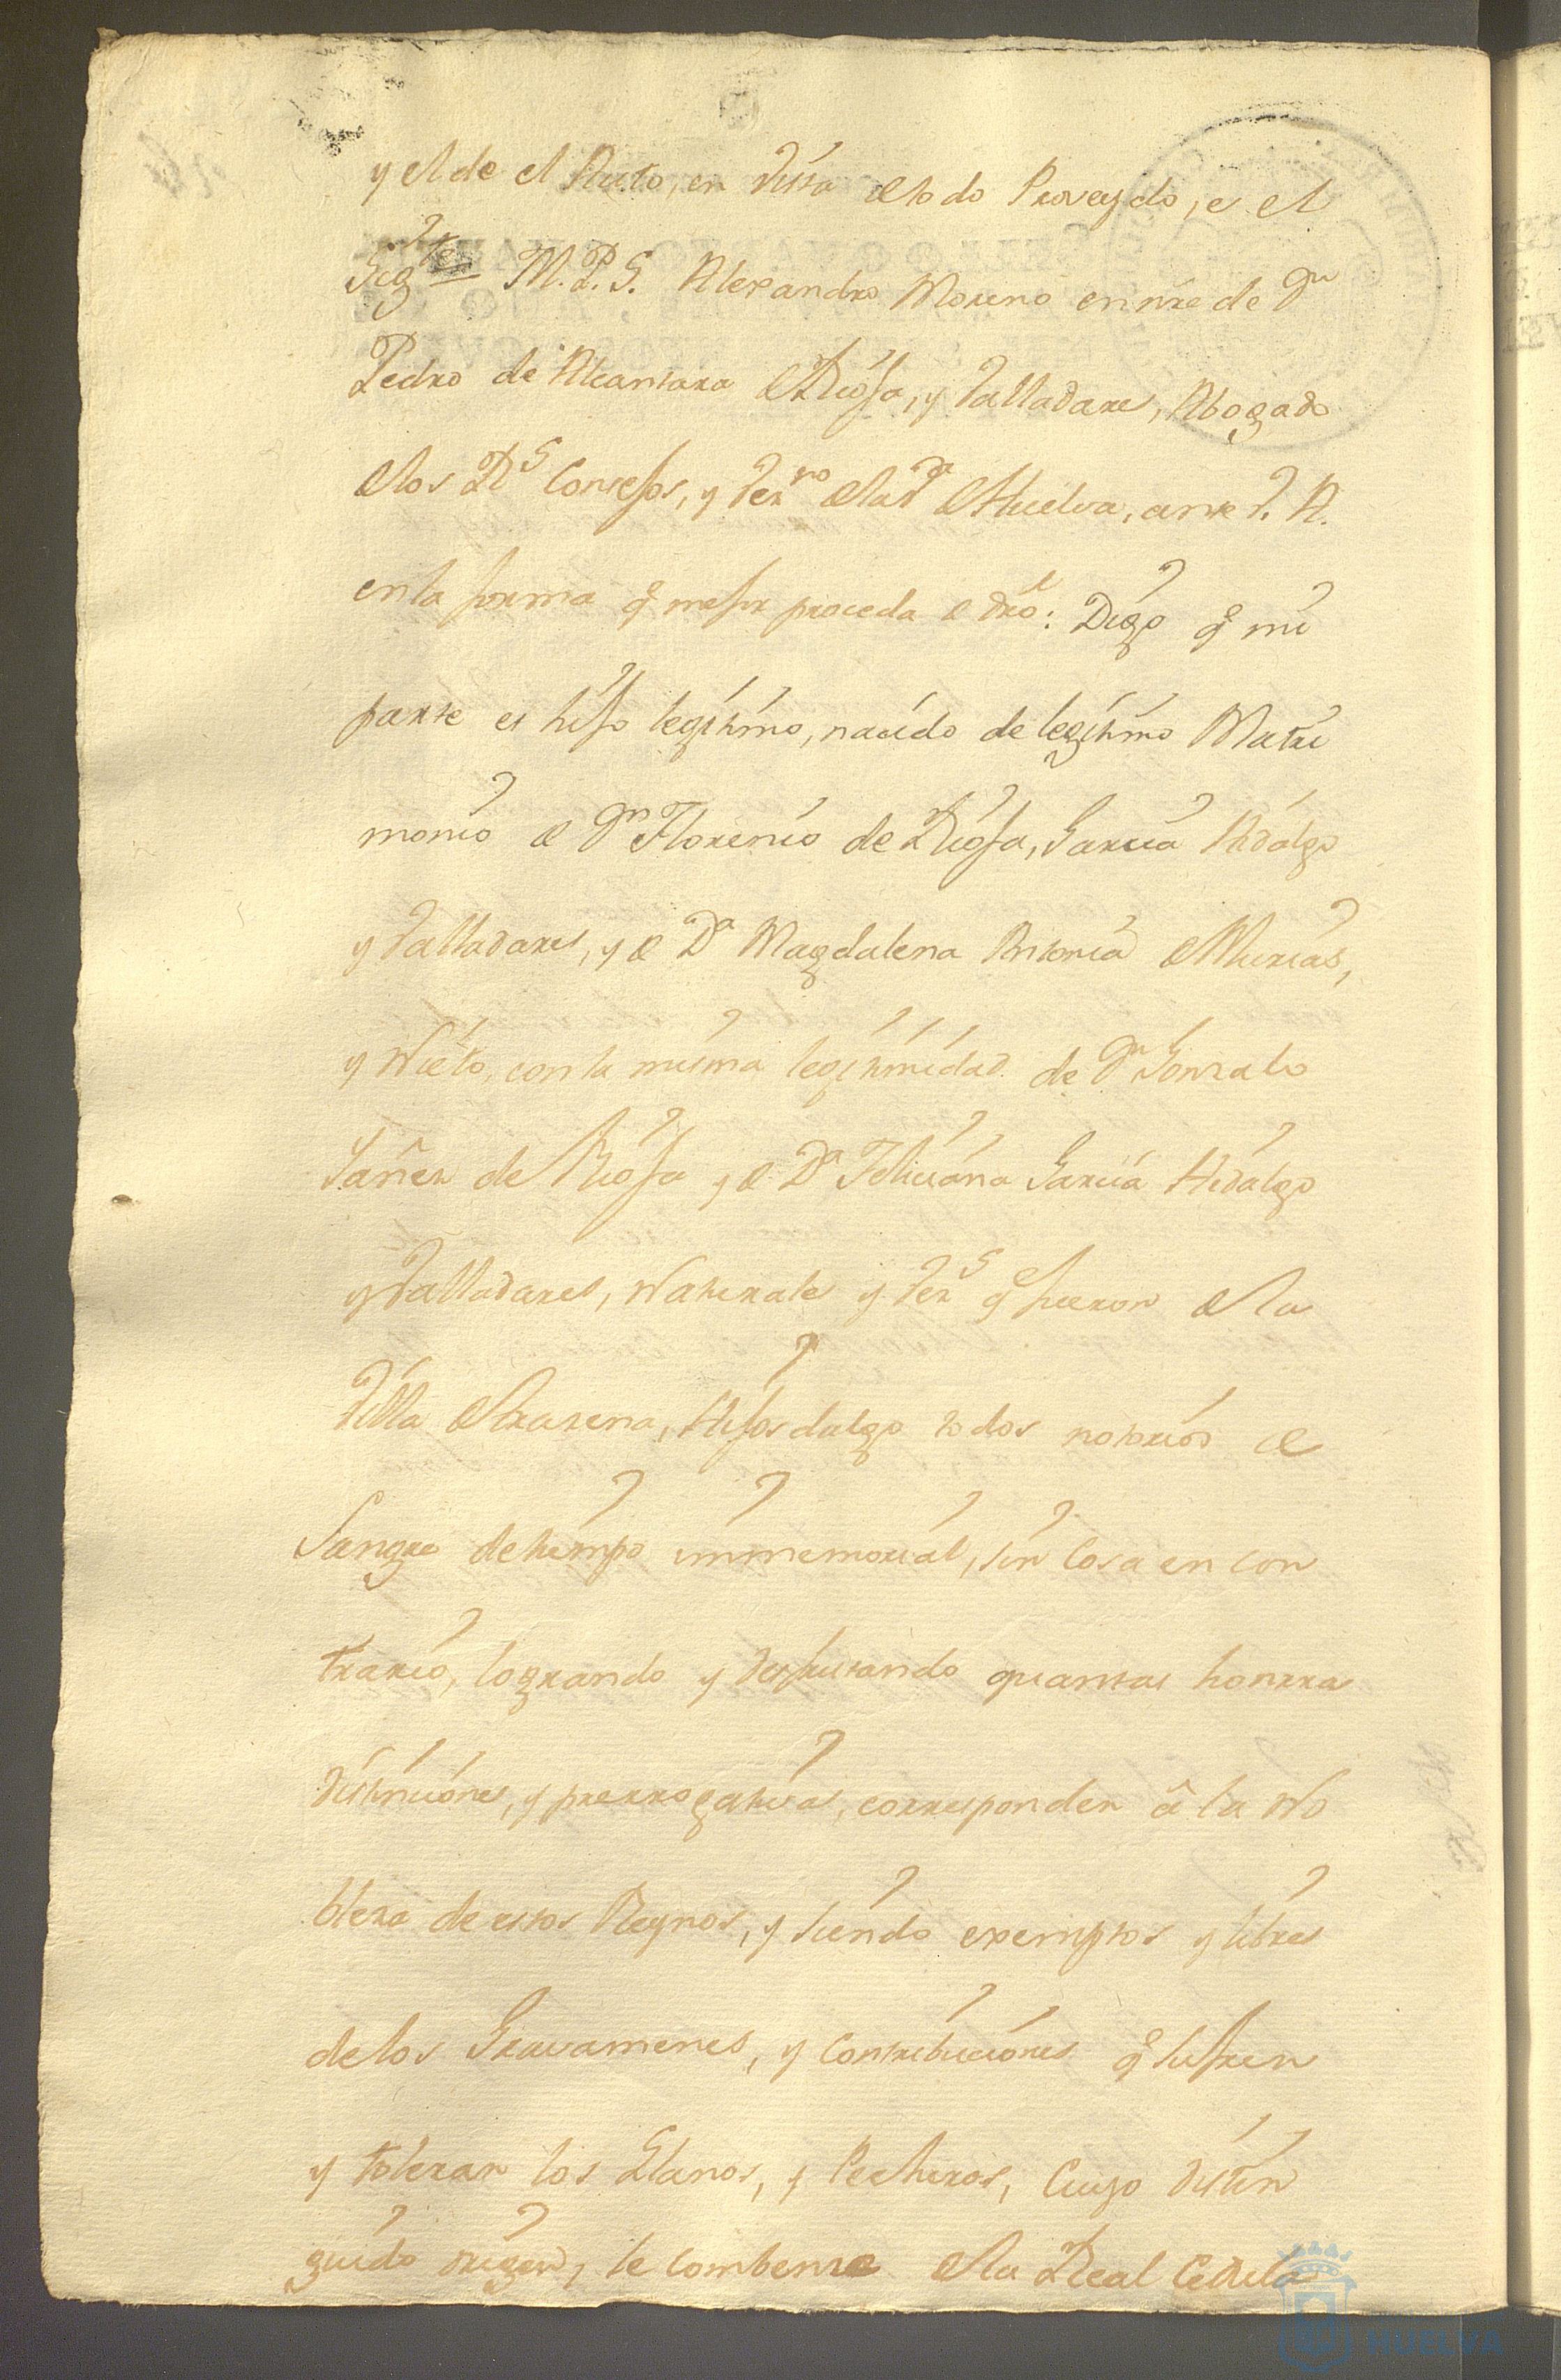 y el de el Auto, en vista de todo Proveydo, es el
Sig.te M.P.S. Alexandro Moreno en nre de Dn
Pedro de Alcantara de Rioja, y Valladares, Abogado
de los Rs Consejos, y Vezno de la Va de Huelva, ante V. A.
en la forma q mejor proceda de dro: Digo q mi
parte es hijo legitimo, nacido de legitimo Matri
monio de Dn Florencio de Rioja, Garcia Hidalgo
y Valladares, y de Da Magdalena Antonia de Murias,
y Nieto, con la misma legitimidad de Dn Gonzalo
Yañez de Rioja y de Da Feliciana Garcia Hidalgo
y Valladares, Naturales y Vezs q fueron de la
Villa de Aracena, Hijos dalgo todos notorios de
Sangre de tiempo immemorial, sin Cosa en con
trario, logrando y disfrutando quantas honrras
distinciones, y prerrogativas, corresponden â la No
bleza de estos Reynos, y siendo exemptos y libres
de los Gravamenes, y Contribuciones q sufren
y toleran los Llanos, y Pecheros, Cuyo distin
guido origen, le combence de la Real Cedula
HUELVA